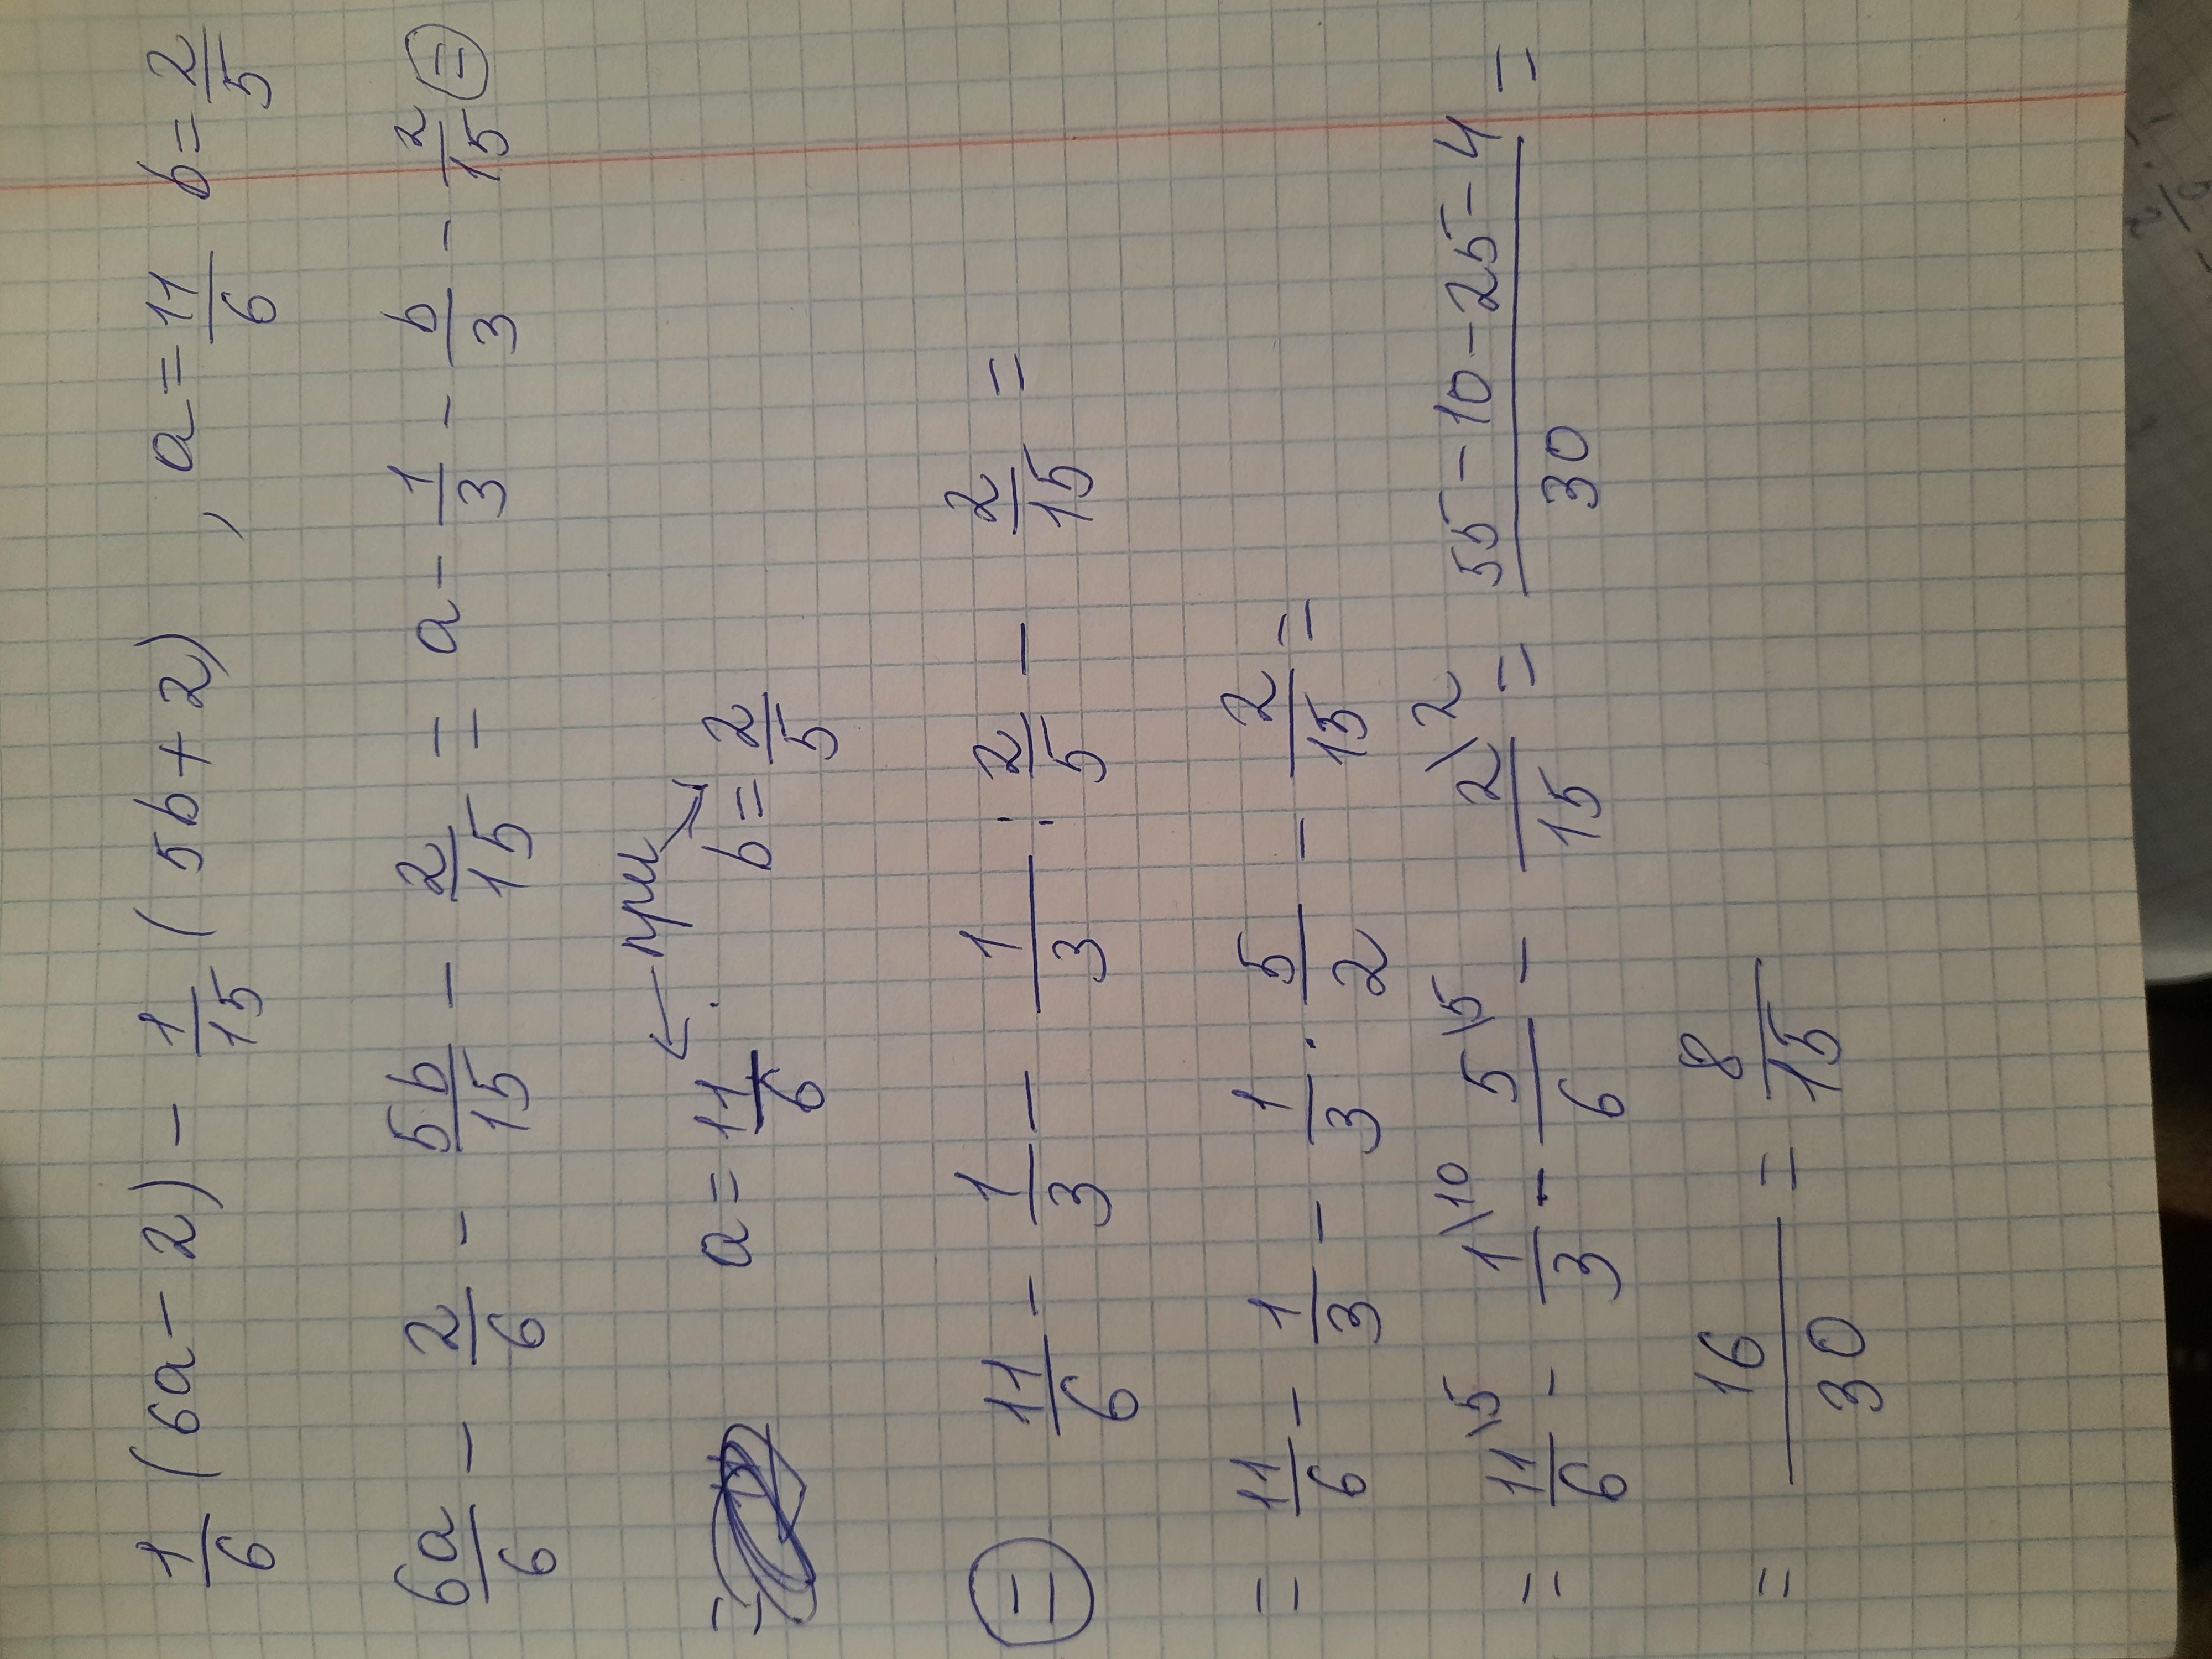 1/6 (6a - 2) - 1/15 (5b + 2) , a = 11/6 b = 2/5
6a/6 - 2/6 - 5b/15 - 2/15 = a - 1/3 - b/3 - 2/15 (=)
a = 11/6 ← при → b = 2/5
(=) 11/6 - 1/3 - 1/3 : 2/5 - 2/15 =
= 11/6 - 1/3 - 1/3 · 5/2 - 2/15 =
= 11\5/6 - 1\10/3 - 5\5/6 - 2\2/15 = 55 - 10 - 25 - 4/30 =
= 16/30 = 8/15